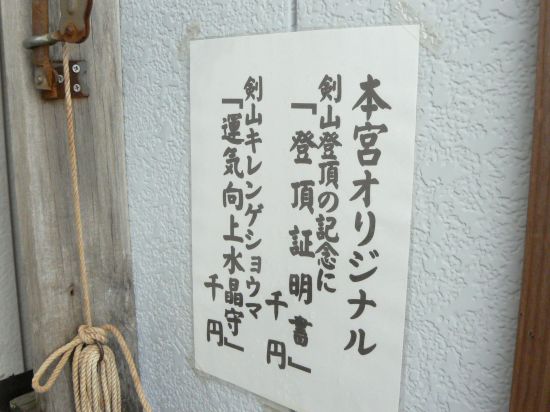 本宮オリジナル
剣山登頂の記念に
「登頂証明書」
千円
剣山キレンゲショウマ
「運気向上水晶守」
千円